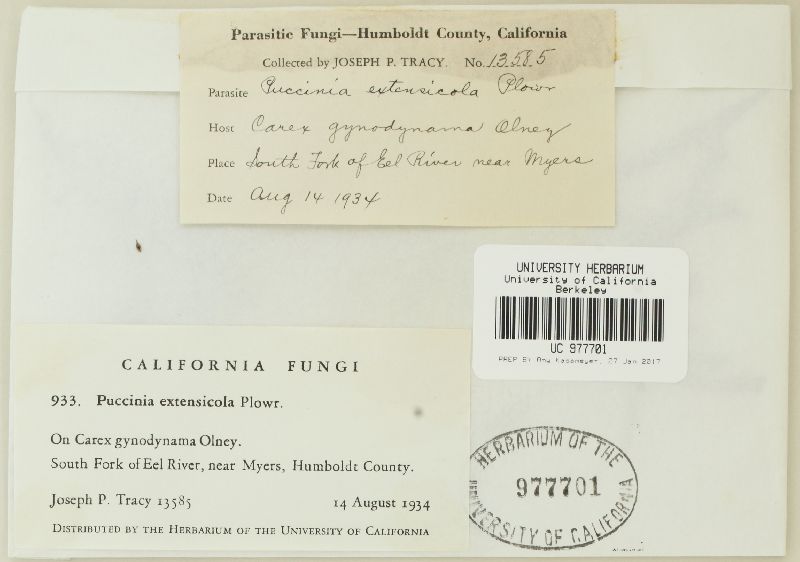 Parasitic Fungi—Humboldt County, California
Collected by JOSEPH P. TRACY. No. 13585
Parasite Puccinia extensicola Plowr
Host Carex gynodynama Olney
Place South Fork of Eel River near Myers
Date Aug 14 1934
UNIVERSITY HERBARIUM
University of California
Berkeley
UC 977701
PREP BY Amy Kasameyer, 27 Jan 2017
CALIFORNIA FUNGI
933. Puccinia extensicola Plowr.
On Carex gynodynama Olney.
South Fork of Eel River, near Myers, Humboldt County.
Joseph P. Tracy 13585 14 August 1934
DISTRIBUTED BY THE HERBARIUM OF THE UNIVERSITY OF CALIFORNIA
HERBARIUM OF THE
977701
UNIVERSITY OF CALIFORNIA